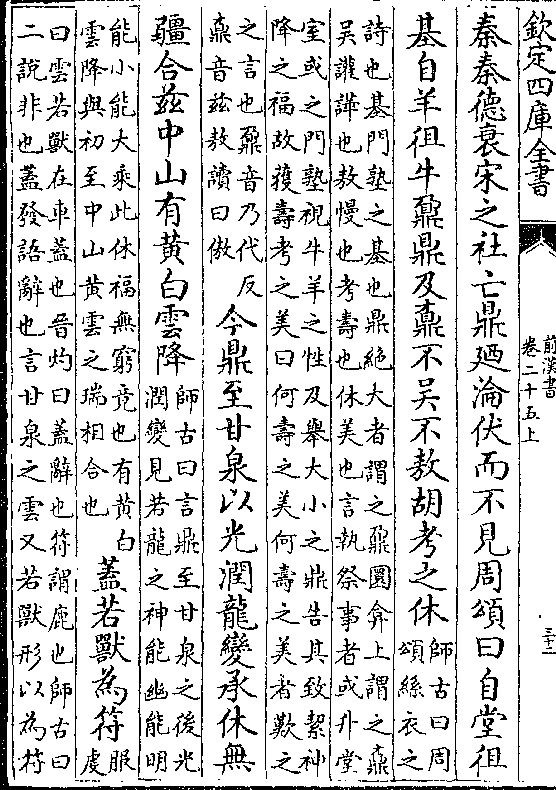 欽定四庫全書
前漢書
卷二十五上
三十二
秦秦德衰宋之社亡鼎廼淪伏而不見周頌曰自堂徂
基自羊徂牛鼐鼎及鼒不吴不敖胡考之休
師古曰周
頌絲衣之
詩也基門塾之基也鼎絶大者謂之鼐圜弇上謂之鼒
吴讙譁也敖慢也考壽也休美也言執祭事者或升堂
室或之門塾視牛羊之性及舉大小之鼎告其致絜神
降之福故獲壽考之美曰何壽之美何壽之美者歎之
之言也鼐音乃代反
鼒音兹敖讀曰傲
今鼎至甘泉以光潤龍變承休無
疆合兹中山有黄白雲降
師古曰言鼎至甘泉之後光
潤變見若龍之神能幽能明
能小能大乘此休福無窮竟也有黄白
雲降與初至中山黄雲之瑞相合也
蓋若獸為符
服䖍
曰雲若獸在車蓋也晉灼曰蓋辭也符謂鹿也師古曰
二説非也蓋發語辭也言甘泉之雲又若獸形以為符